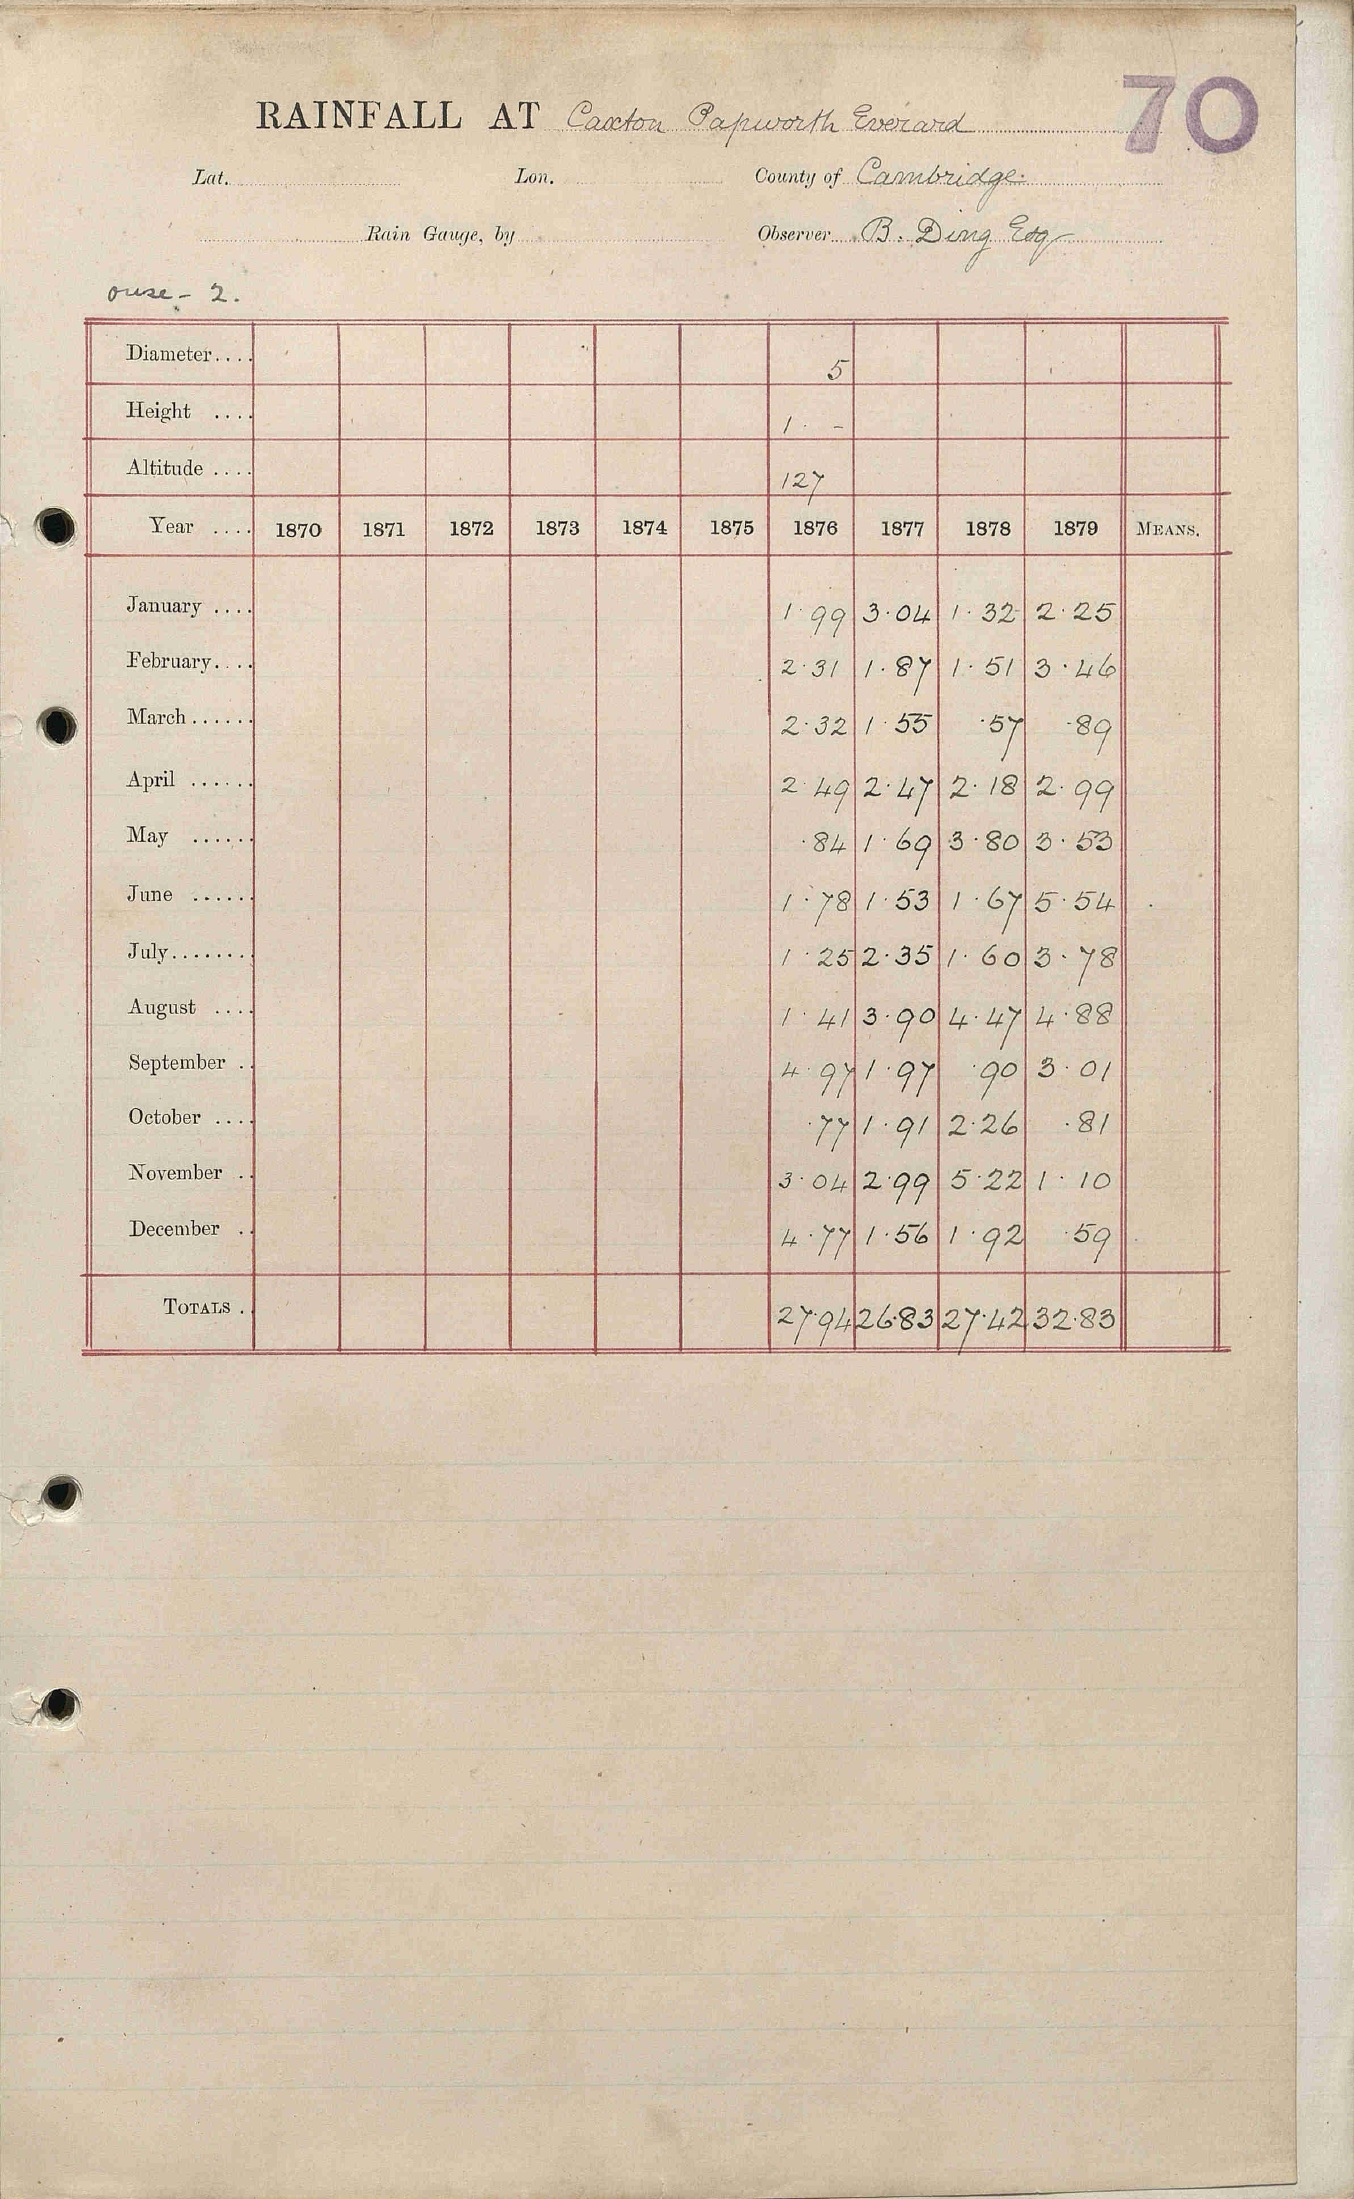 70
RAINFALL AT Caxton Papworth Everard
Lat. Lon. County of Cambridge.
Rain Gauge, by Observer B. Ding Esq
ouse - 2.
Diameter.... 5
Height .... 1 · -
Altitude .... 127
Year .... 1870 1871 1872 1873 1874 1875 1876 1877 1878 1879 MEANS.
January .... 1·99 3·04 1·32 2·25
February.... 2·31 1·87 1·51 3·46
March...... 2·32 1·55 ·57 ·89
April ...... 2·49 2·47 2·18 2·99
May ...... ·84 1·69 3·80 3·53
June ...... 1·78 1·53 1·67 5·54
July........ 1·25 2·35 1·60 3·78
August .... 1·41 3·90 4·47 4·88
September .. 4·97 1·97 ·90 3·01
October .... ·77 1·91 2·26 ·81
November .. 3·04 2·99 5·22 1·10
December .. 4·77 1·56 1·92 ·59
TOTALS .. 27·94 26·83 27·42 32·83